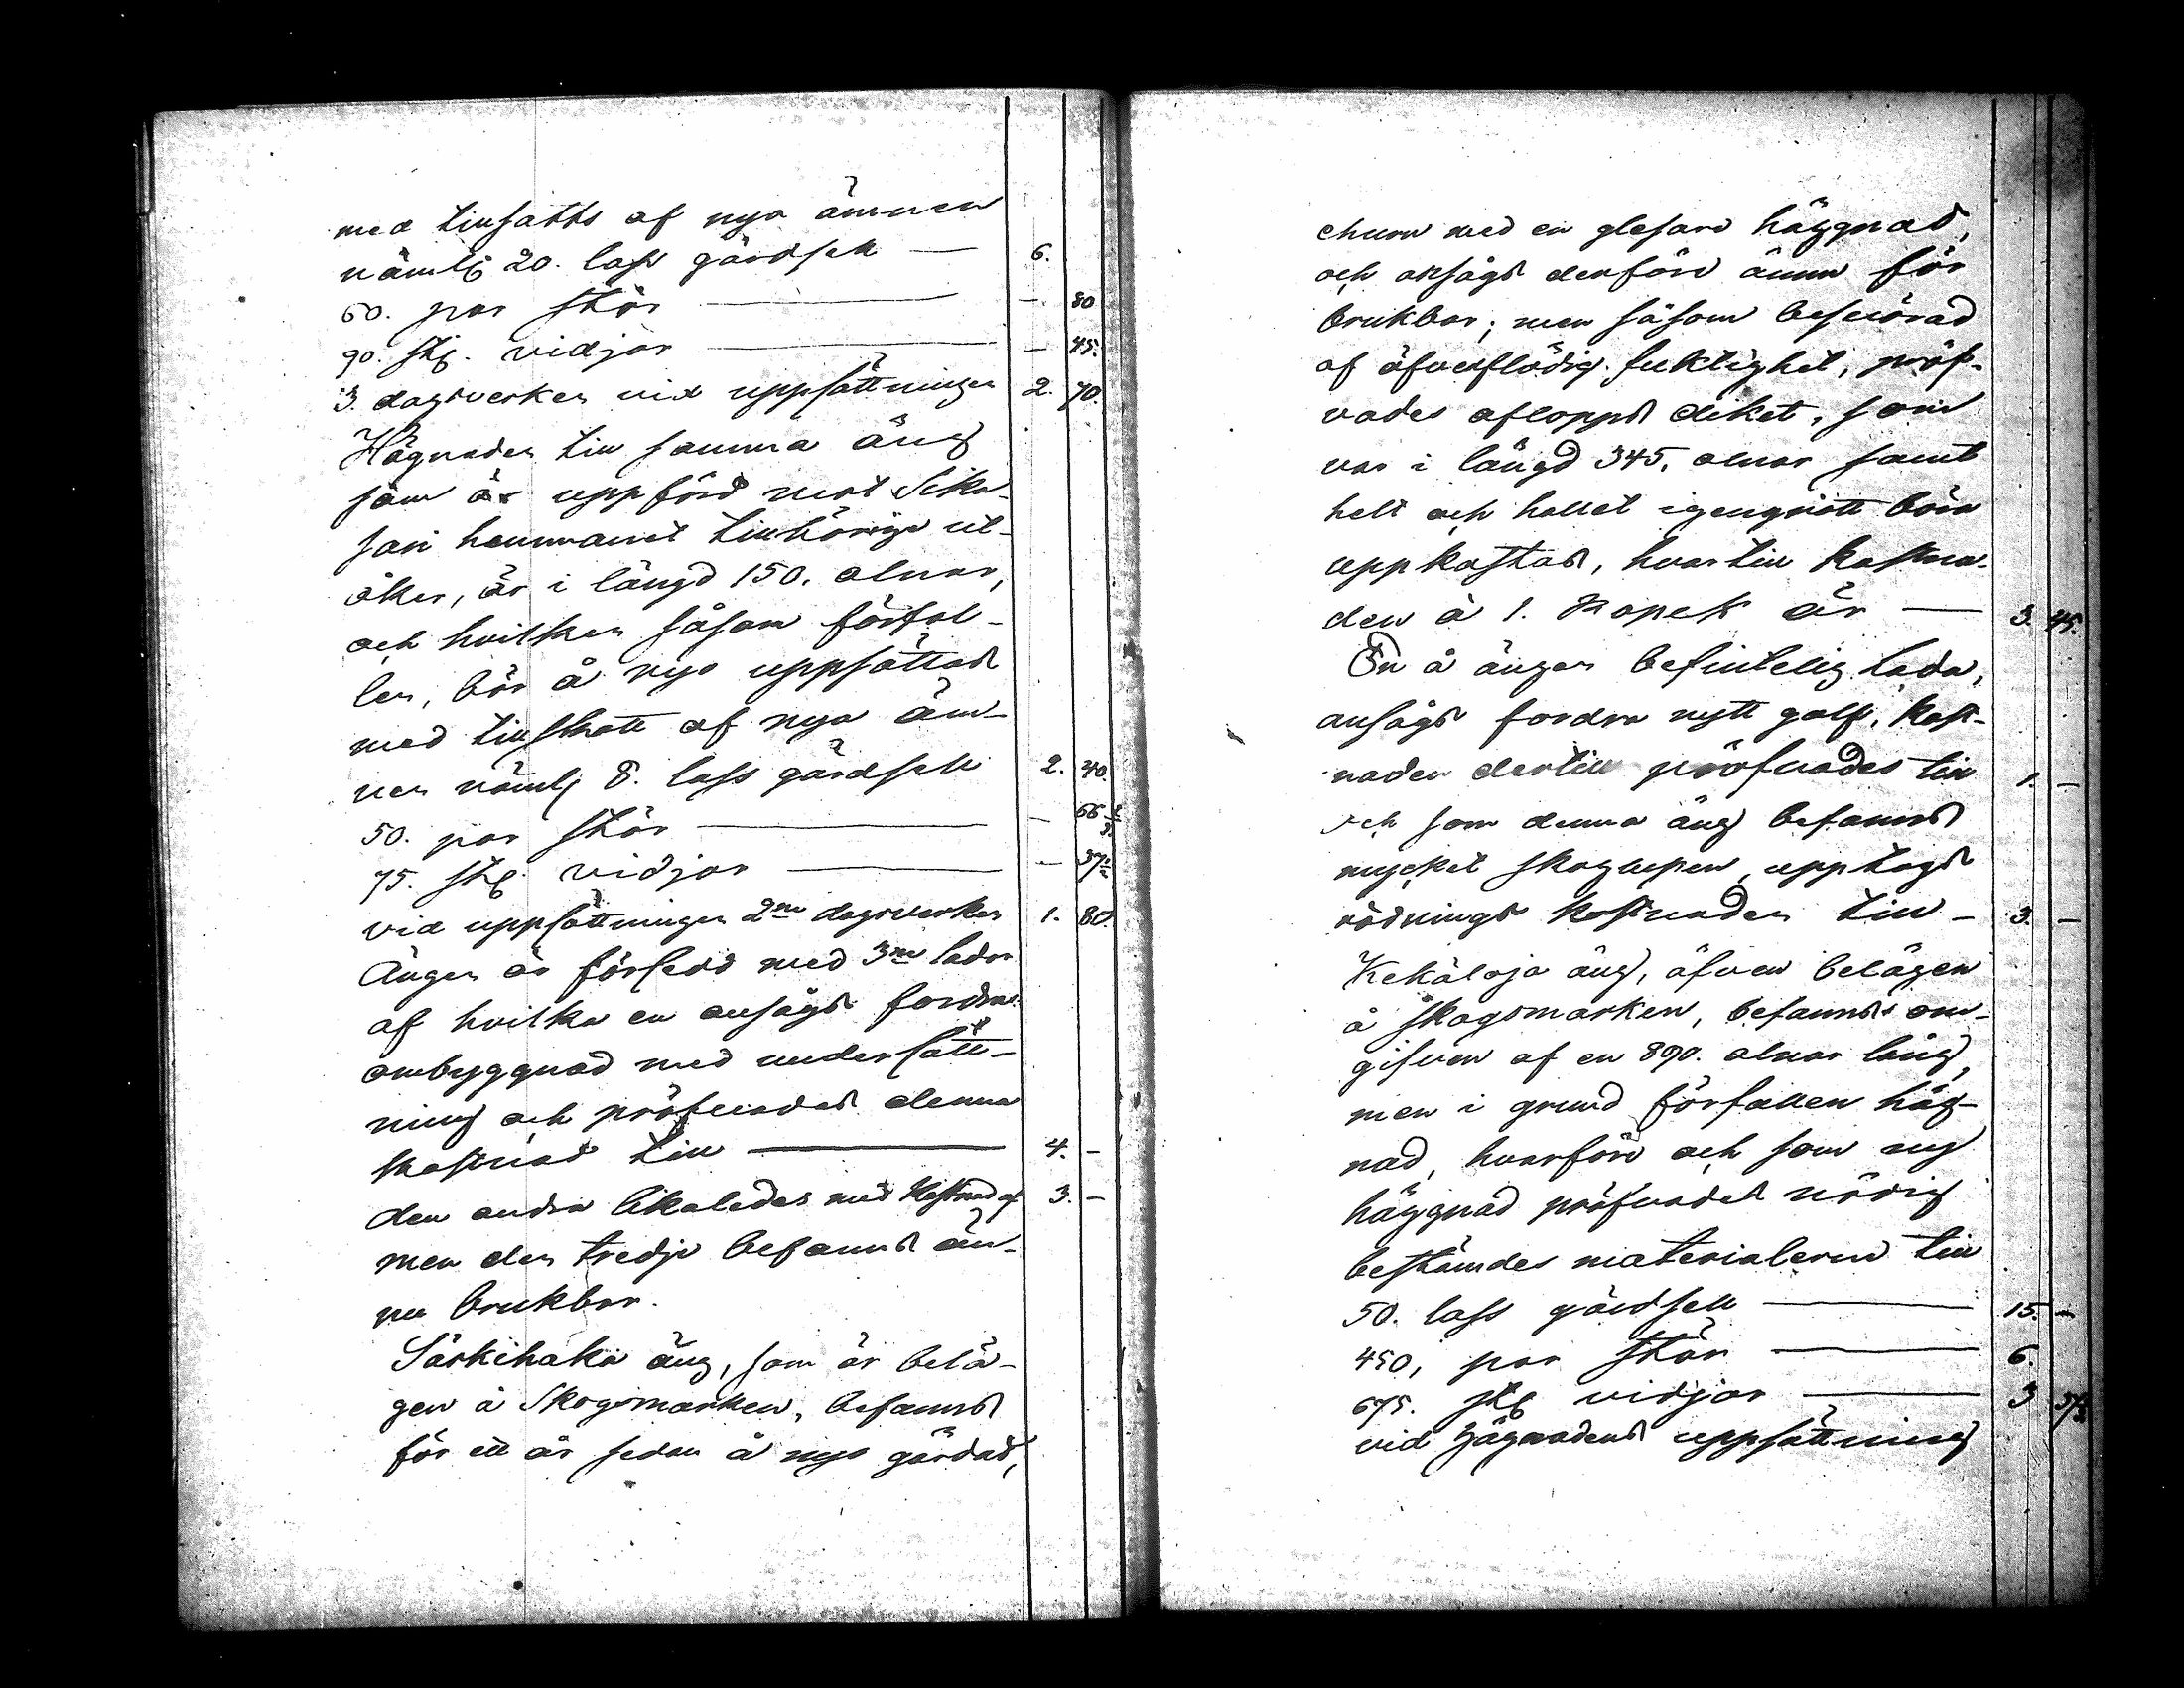 med tillsatts af nya ämnen
näml; 20. lass gärdsell — 6.
60. par stör — — 80
90. st; vidjor — — 45.
3. dagsverken vid uppsättningen 2. 70.
Hägnaden till samma äng
som är uppförd mot Sika-
sari hemmanet tillhörige ut-
åker, är i längd 150. alnar,
och hvilken såsom förfal-
len, bör å nyo uppsättas
med tillskott af nya äm-
nen näml; 8. lass gärdsell 2. 40.
50. par stör — — 66 2/3.
75. st; vidjor — — 37 1/2
vid uppsättningen 2ne dagsverken 1. 80.
Ängen är försedd med 3ne lador
af hvilka en ansågs fordra
ombyggnad med undersätt-
ning och pröfvades denna
kostnad till — 4. —
den andra likaledes med kostnad af 3. —
men den tredje befanns än-
nu brukbar.
Särkihaka äng, som är belä-
gen å Skogsmarken, befanns
för ett år sedan å nyo gärdad,
ehuru med en glesare häggnad,
och ansågs derföre ännu för
brukbar; men såsom besvärad
af öfverflödig fuktighet, pröf-
vades aflopps diket, som
var i längd 345. alnar samt
helt och hållet igengrott böra
uppkastas, hvartill kostna-
den à 1. Kopek är — 3. 45.
En å ängen befintelig lada,
ansågs fordra nytt golf, kost-
naden dertill pröfvades till 1. —
och som denna äng befanns
mycket skogvepen, upptogs
rödnings kostnaden till — 3. —
Kekäloja äng, äfven belägen
å skogsmarken, befanns om-
gifven af en 890. alnar lång,
men i grund förfallen häg-
nad, hvarföre och som ny
häggnad pröfvades nödig
bestämdes materialerne till
50. lass gärdsell — 15. —
450, par stör — 6.
675. st; vidjor — 3 37 1/2
vid hägnadens uppsättning